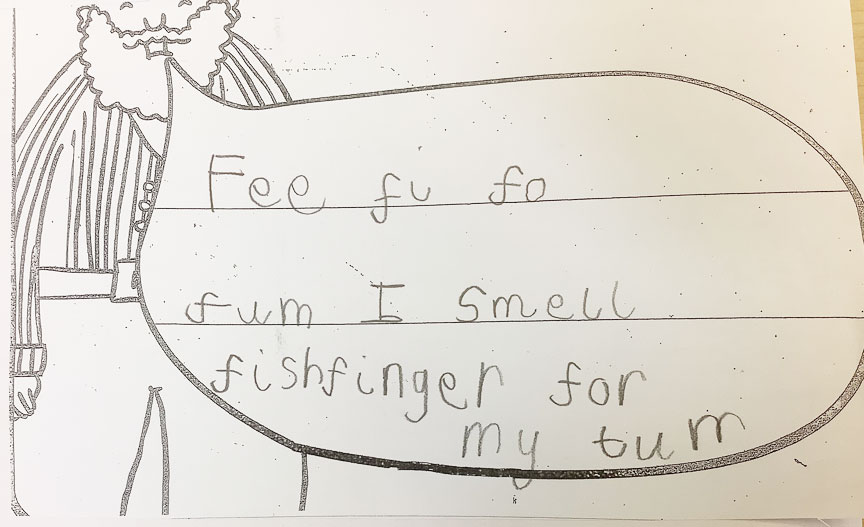 Fee fi fo
fum I Smell
fishfinger for
my tum